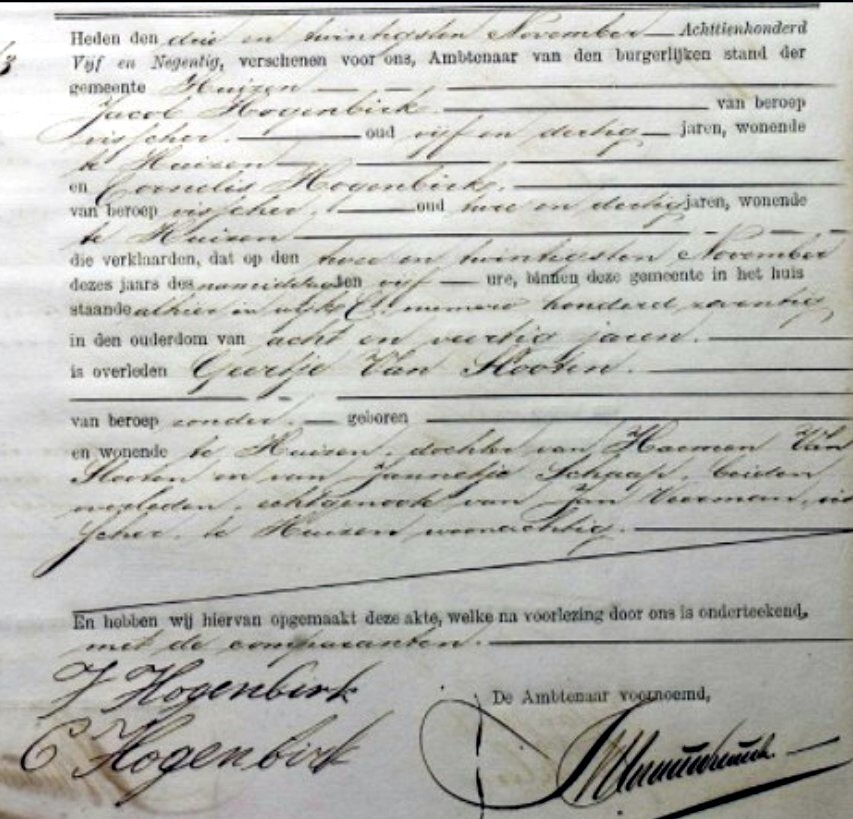 Heden den drie en twintigsten November Achttienhonderd
Vijf en Negentig, verschenen voor ons, Ambtenaar van den burgerlijken stand der
gemeente Huizen
Jacob Hogenbirk van beroep
visscher, oud vijf en dertig jaren, wonende
te Huizen
en Cornelis Hogenbirk,
van beroep visscher, oud twee en dertig jaren, wonende
te Huizen
die verklaarden, dat op den twee en twintigsten November
dezes jaars des namiddags ten vijf ure, binnen deze gemeente in het huis
staande alhier in wijk C. numero honderd zeventig,
in den ouderdom van acht en veertig jaren.
is overleden Geertje Van Slooten.
van beroep zonder. geboren
en wonende te Huizen, dochter van Harmen Van
Slooten en van Jannetje Schaap, beiden
overleden, echtgenoote van Jan Veerman, vis
scher, te Huizen woonachtig.
En hebben wij hiervan opgemaakt deze akte, welke na voorlezing door ons is onderteekend,
met de comparanten.
J Hogenbirk
De Ambtenaar voornoemd,
C Hogenbirk